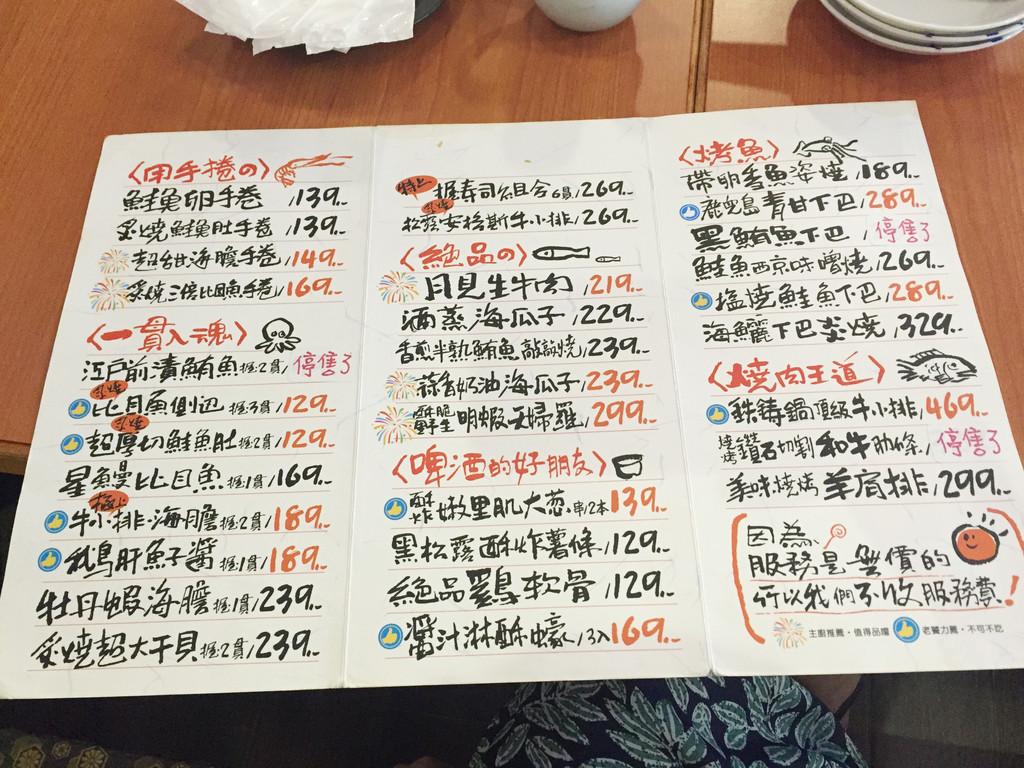 〈用手捲の〉
鮭魚卵手卷 /139.-
炙燒鮭魚肚手卷 /139.-
超甜海膽手卷 /149.-
炙燒三倍比目魚手卷 /169.-
〈一貫入魂〉
江戶前漬鮪魚 握2貫/ 停售了
炙燒
比目魚側迎 握3貫/129.-
炙燒
超厚切鮭魚肚 握2貫/129.-
星鰻比目魚 握1貫/169.-
極上
牛小排·海膽 握2貫/189.-
鵝肝魚子醬 握1貫/189.-
牡丹蝦海膽 握1貫/239.-
炙燒超大干貝 握2貫/239.-
特上 握壽司組合 6貫/269.-
炙燒
松露安格斯牛小排/269.-
〈絕品の〉
月見生牛肉 /219.-
酒蒸海瓜子 /229.-
香煎半熟鮪魚敲敲燒/239.-
蒜香奶油海瓜子 /239.-
鮮脆明蝦天婦羅 /299.-
〈啤酒的好朋友〉
酥炸嫩里肌大蔥 串/2本 139.-
黑松露酥炸薯條 /129.-
絕品雞軟骨 /129.-
醬汁淋酥蠔 /3入 169.-
〈烤魚〉
帶卵香魚姿燒 /189.-
鹿兒島青甘下巴/289.-
黑鮪魚下巴 / 停售了
鮭魚西京味噌燒/269.-
塩燒鮭魚下巴/289.-
海鱺下巴炙燒/329.-
〈燒肉王道〉
鉄鑄鍋頂級牛小排/469.-
燒烤鑽石切割和牛肋條/停售了
美味燒烤羊肩排/299.-
因為
服務是無價的
所以我們不收服務費!
主廚推薦·值得品嚐 老饕力薦·不可不吃